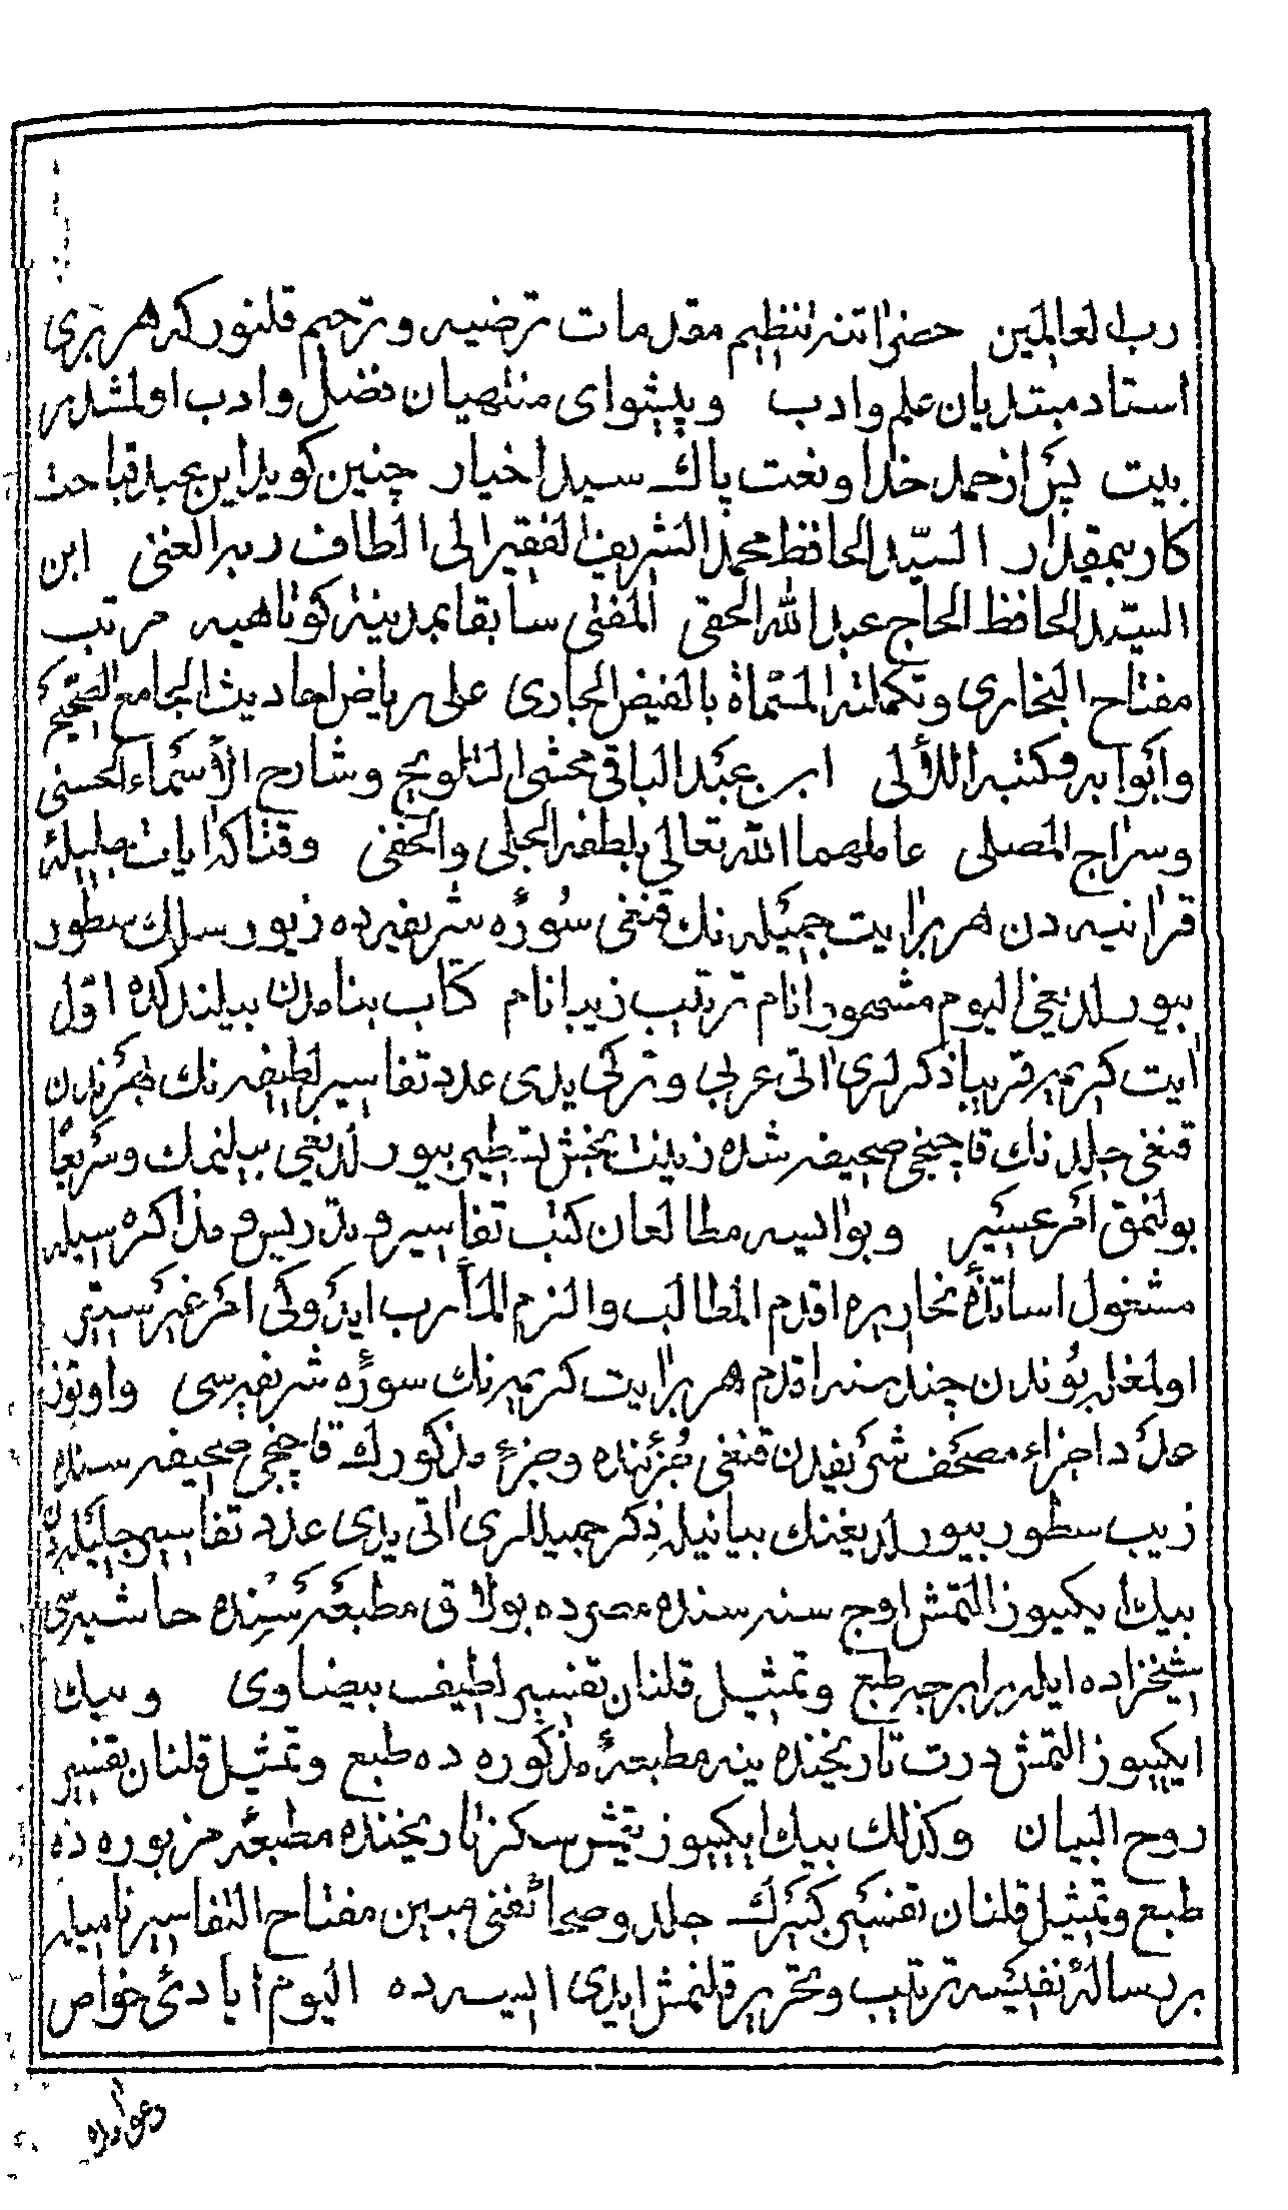 رب العالمين حضراتنه تنظيم مقدمات ترضيه وترحيم قلنور كه هر بری
استاد مبتديان علم وادب وپيشوای منتهيان فضل وادب اولمشلدر
بيت پس از حمد خدا ونعت پاك سيد اخيار چنين كويد اين عبد قباحت
كار بيمقدار السيد الحافظ محمد الشريف الفقير الى الطاف ربه الغنى ابن
السيد الحافظ الحاج عبد الله الحقى المفتى سابقا بمدينة كوتاهيه مرتب
مفتاح البخارى وتكملته المسماة بالفيض الجارى على رياض احاديث الجامع الصحيح
وابوابه وكتبه اللألى ابن عبد الباقى محشى التلويح وشارح الأسماء الحسنى
وسراج المصلى عاملهما الله تعالى بلطفه الجلى والخفى وقتاكه ايات جليلۀ
قرانيه دن هر بر ايت جميله نك قنغى سورۀ شريفه ده زيور سلك سطور
بيورلديغى اليوم مشهور انام ترتيب زيبا نام كتاب بنامدن بيلندكده اول
ايت كريمه قريبا ذكرلرى اتى عربى وتركى يدى عدد تفاسير لطيفه نك هر برندن
قنغى جلدنك قاچنجى صحيفه سنده زينت بخش تسطير بيورلديغى بيلنمك وسريعا
بولنمق امر عسير وبو ايسه مطالعان كتب تفاسير وتدريس ومذاكره سيله
مشغول اساتذۀ نحاريره اقدم المطالب والزم المأرب ايدوكى امر غير ستير
اولمغله بوندن چند سنه اقدم هر بر ايت كريمه نك سورۀ شريفه سى واوتوز
عدد اجزاء مصحف شريفدن قنغى جزئنده وجزء مذكورك قاچنجى صحيفه سنده
زيب سطور بيورلديغنك بيانيله ذكر جميللرى اتى يدى عدد تفاسير جليله دن
بيك ايكيوز التمش اوچ سنه سنده مصرده بولاق مطبعه سنده حاشيه سى
شيخزاده ايله برابرجه طبع وتمثيل قلنان تفسير لطيف بيضاوى وبيك
ايكيوز التمش درت تاريخنده ينه مطبعۀ مذكوره ده طبع وتمثيل قلنان تفسير
روح البيان وكذلك بيك ايكيوز يتمش سكز تاريخنده مطبعۀ مزبوره ده
طبع وتمثيل قلنان تفسير كبيرك جلد وصحائفنى مبين مفتاح التفاسير ناميله
بر رسالۀ نفيسه ترتيب وتحرير قلنمش ايدى ايسه ده اليوم ايادئ خواص